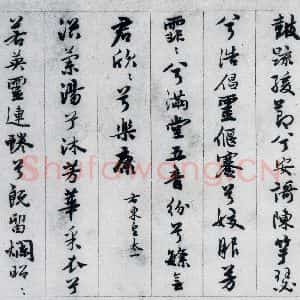 鼓疏緩節兮安謌陳竽瑟
兮浩倡靈偃蹇兮姣服芳
霏〻兮滿堂五音紛兮繁會
君欣〻兮樂康 右東皇太一
浴蘭湯兮沐芳華采衣兮
若英靈連蜷兮既留爛昭〻
Shufawang.CN